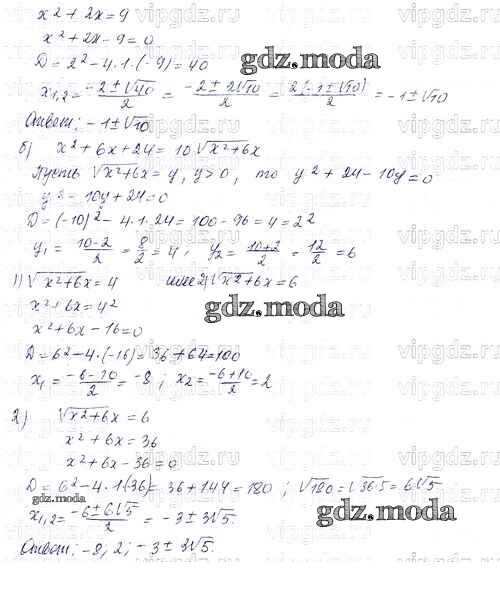 x² + 2x = 9
x² + 2x - 9 = 0
D = 2² - 4·1·(-9) = 40
x₁,₂ = (-2 ± √40)/2 = (-2 ± 2√10)/2 = 2(-1 ± √10)/2 = -1 ± √10
Ответ: -1 ± √10
б) x² + 6x + 24 = 10√x² + 6x
Пусть √x² + 6x = y, y > 0, то y² + 24 - 10y = 0
y² - 10y + 24 = 0
D = (-10)² - 4·1·24 = 100 - 96 = 4 = 2²
y₁ = (10 - 2)/2 = 8/2 = 4, y₂ = (10 + 2)/2 = 12/2 = 6
1) √x² + 6x = 4 или 2) √x² + 6x = 6
x² + 6x = 4²
x² + 6x - 16 = 0
D = 6² - 4·(-16) = 36 + 64 = 100
x₁ = (-6 - 10)/2 = -8; x₂ = (-6 + 10)/2 = 2
2) √x² + 6x = 6
x² + 6x = 36
x² + 6x - 36 = 0
D = 6² - 4·1·(36) = 36 + 144 = 180; √180 = √36·5 = 6√5
x₁,₂ = (-6 ± 6√5)/2 = -3 ± 3√5.
Ответ: -8; 2; -3 ± 3√5.
gdz.moda
gdz.moda
gdz.moda
gdz.moda
vipgdz.ru